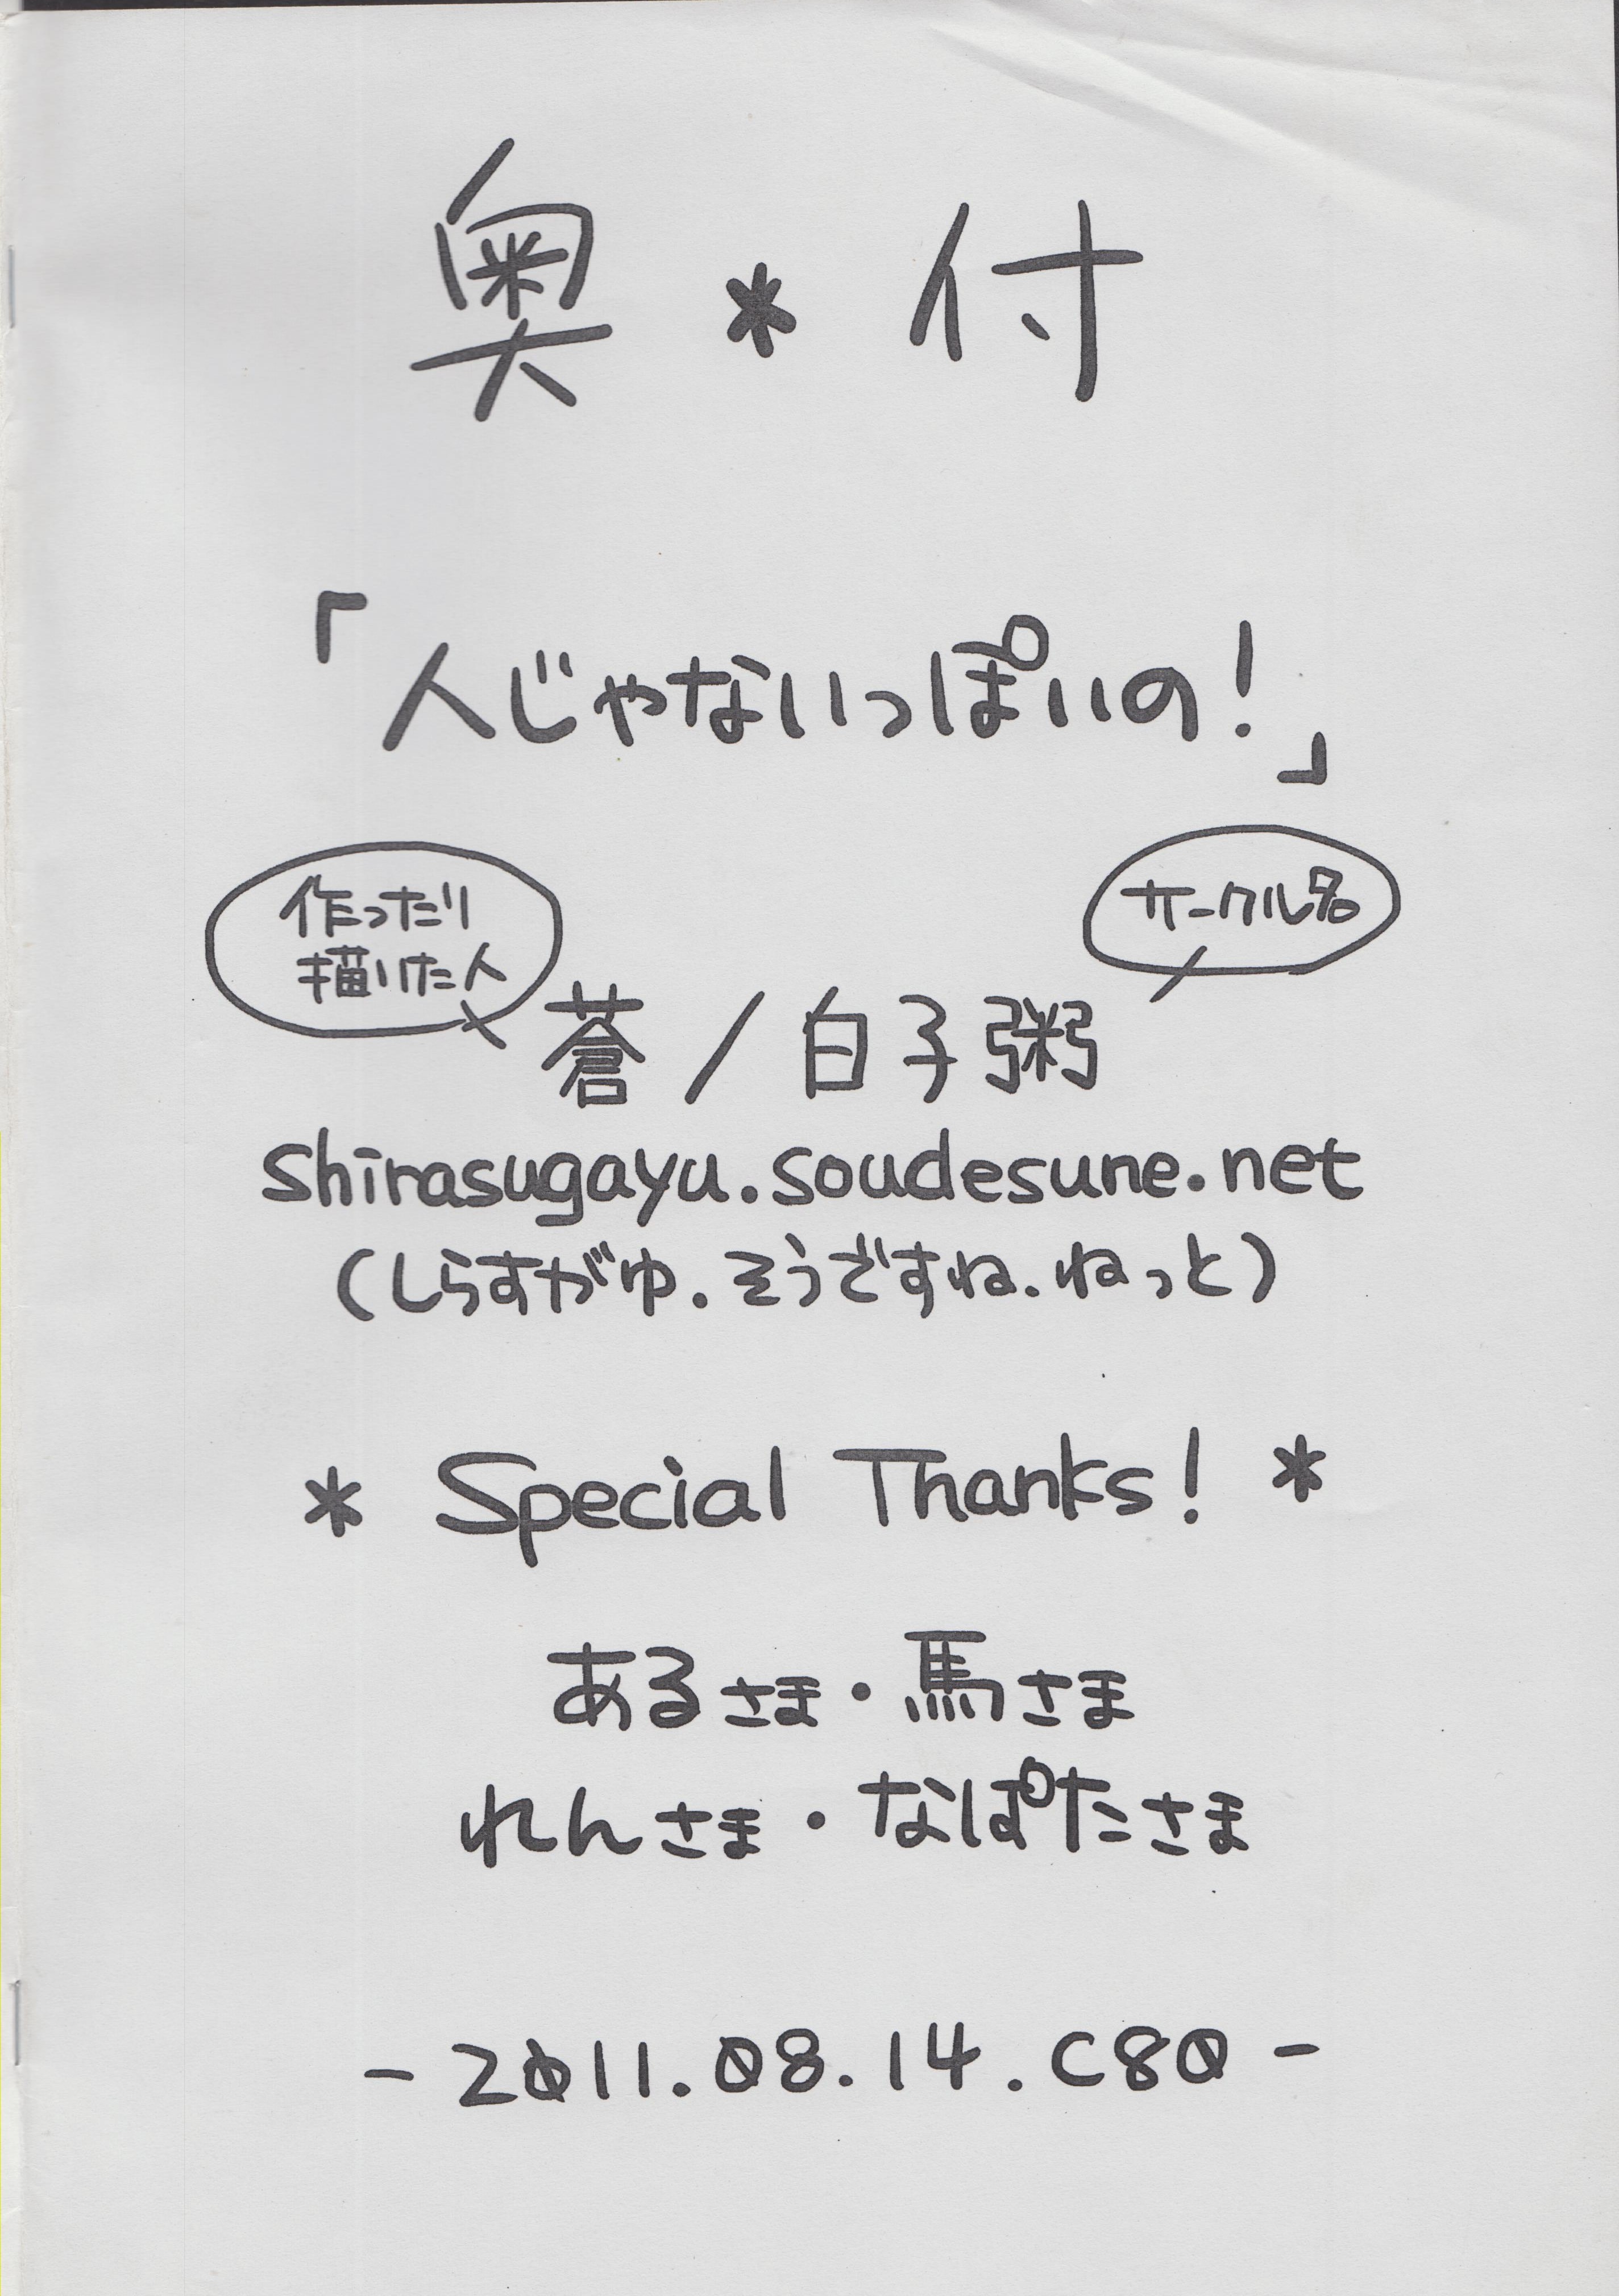 奥*付
「人じゃないっぽいの!」
作ったり
描いた人
サークル名
蒼/白子粥
shirasugayu.soudesune.net
(しらすがゆ.そうですね.ねっと)
* Special Thanks! *
あるさま・馬さま
れんさま・なぽたさま
-2011.08.14.C80-